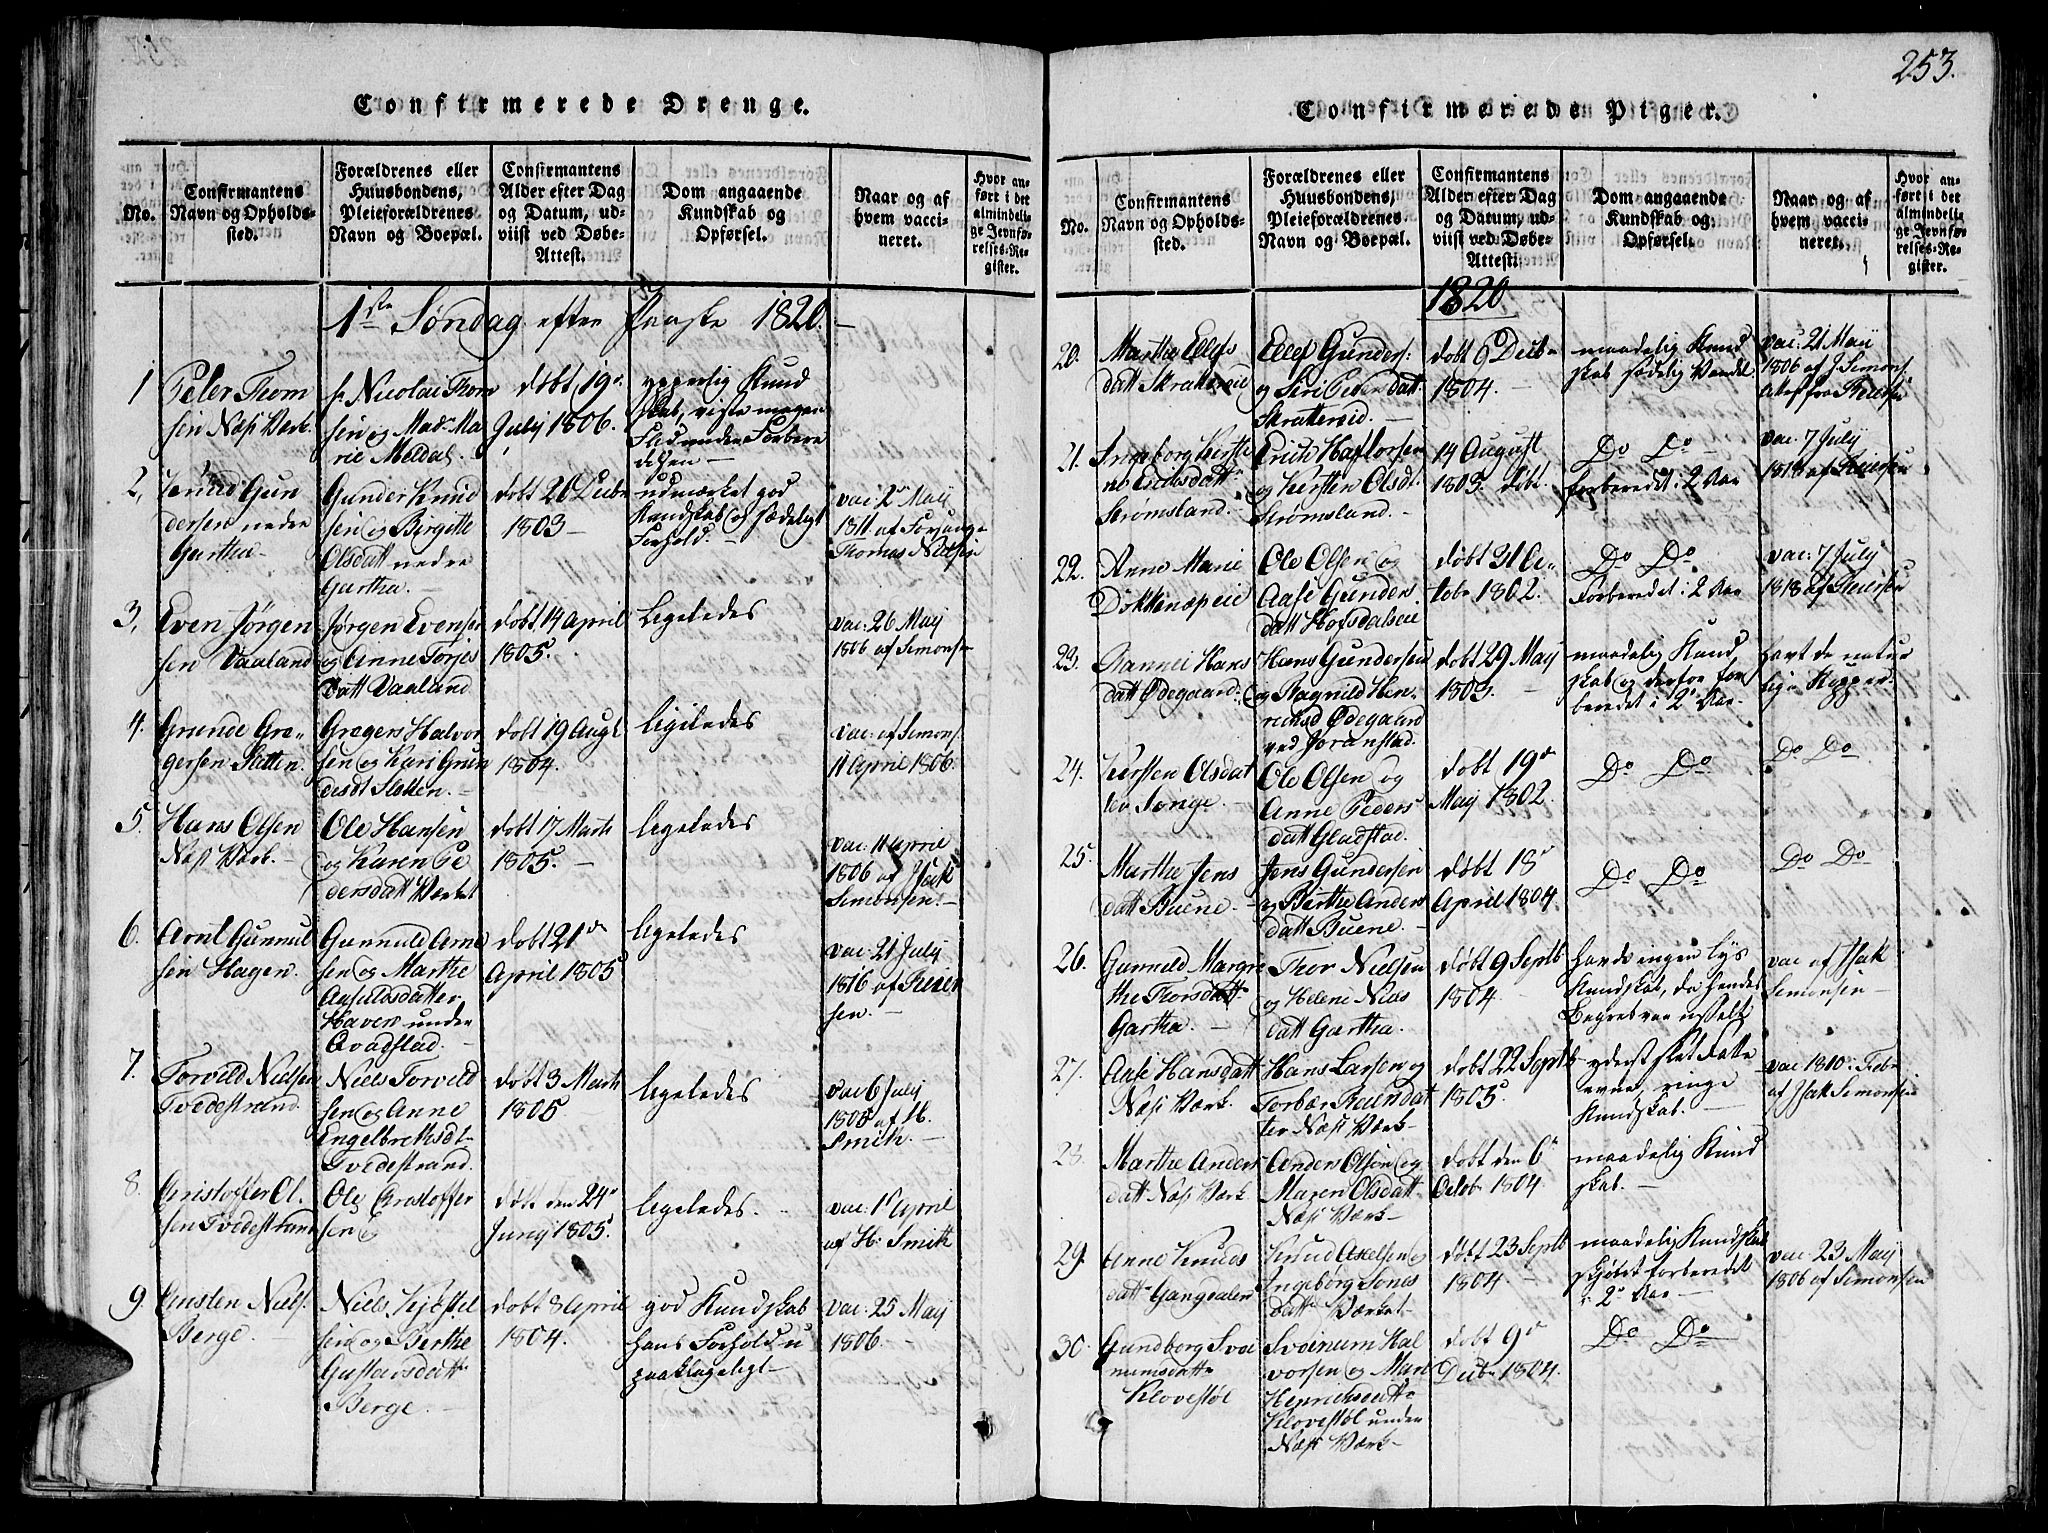 Confirmerede Drenge.
No.
Confirmantens
Navn og Opholds-
sted.
Forældrenes eller
Huusbondens,
Pleieforældrenes
Navn og Boepæl.
Confirmantens
Alder efter Dag
og Datum, ud-
viist ved Døbe-
Attest.
Dom angaaende
Kundskab og
Opførsel.
Naar og af
hvem vacci-
neret.
Hvor an-
ført i det
almindeli-
ge Jevnfø-
relses-Re-
gister.
1ste Søndag efter Paaske 1820.
1
Peter Thom
sen Næs Værk.
Nicolai Thom
sen og Mad. Ma
rie Meldal.
døbt 19de
July 1806.
ypperlig Kund
skab, viste megen
Flid under Forbere
delsen
2,
Knud Gun
dersen nedre
Gartha
Gunder Knud
sen og Bergitte
Olsdatt nedre
Gartha.
døbt 20 Decbr
1803
udmærket god
Kundskab og sædeligt
Forhold.
vac. 2 May
1811 af Forvang.
Thomas Nielsen
3,
Even Jørgen
sen Vaaland
Jørgen Evensen
og Anne Torjes
datt Vaaland
døbt 14 April
1805.
Ligeledes
vac. 26 Maj
1806 af Simonsen
4.
Grunde Gre-
gersen Slatten.
Gregers Halvor
sen og Kari Grun
desdt Slatten.
døbt 19 Augt
1804.
ligeledes
vac: af Simons.
11 April 1806.
5.
Hans Olsen
Næs Værk.
Ole Hansen
og Karen Pe
dersdatt Værket
døbt 17 Marts
1805.
ligeledes
vac: 11 April
1806 af Isak
Simonsen.
6.
Arnt Gunnul
sen Hagen.
Gunnuld Arne
sen og Marthe
Haven under
Qvadstad.
døbt 21de
April 1805
ligeledes
vac: 21 July
1816 af Reier
sen.
7.
Torvild Nielsen
Tvedestrand.
Niels Torvild
sen og Anne
Engelbrethsdt
Tvedestrand.
døbt 3 Marts
1805.
ligeledes
vac 6 July
1805 af H.
Smith.
8.
Christoffer Ol
sen Tvedestrand
Ole Christoffer
sen og
døbt den 24de
Juny 1805.
ligeledes.
vac: 1 April
af H. Smith
9.
Christen Niels.
Berge.
Niels Kjøstel
sen og Berthe
Gustavsdatt
Berge.
døbt 8 April
1804.
god Kundskab
hans Forhold u
paaklageligt
vac: 25 May
1806.
253.
Confirmerede Piger.
No.
Confirmantens
Navn og Opholds-
sted.
Forældrenes eller
Huusbondens,
Pleieforældrenes
Navn og Boepæl.
Confirmantens
Alder efter Dag
og Datum, ud-
viist ved Døbe-
Attest.
Dom angaaende
Kundskab og
Opførsel.
Naar og af
hvem vacci-
neret.
Hvor an-
ført i det
almindeli-
ge Jevnfø-
relses-Re-
gister.
1820
20.
Marthe Ellefs
datt Skratereie
Ellef Gunders:
og Siri Peders datt
Skattereid.
døbt 9 Decbr
1804.
maadelig Kund
skab sædelig Vandel
vac: 21 Maii
1806 af J. Simons.
21.
Ingeborg Kirsti
ne Erichsdatt
Strømsland.
Erich Haftorsen
og Kirsten Olsdt
Strømsland.
14 August
1803 døbt.
Do Do
forberedt i 2 Aar
vac: 7 July
1818 af Reiersen
22.
Anne Marie
Dokkenæpeie
Ole Olsen og
Aase Gunders
datt Hofsdalseie
døbt 31 Oc-
tobr 1802.
Do Do
Forberedet i 2 Aar
vac: 7 July
1818 af Reiersen
23.
Rannei Hans
datt Ødegaard
Hans Gundersen
og Ragnild Hen-
richsd Ødegaard
ved Joranstad.
døbt 29 May
1803.
maadelig Kund
skab og derfor for
beredet i 2 Aar
havt de natur
lige Kopper.
24.
Kirsten Olsdat
ter Songe.
Ole Olsen og
Anne Peders
datt Gladstad.
døbt 19de
May 1802.
Do Do
Do Do
25.
Marthe Jens
datt Buene.
Jens Gundersen
og Birthe Anders
datt Buene.
døbt 18de
April 1804.
Do Do
Do Do
26.
Gunnild Margre
the Thorsdatt
Gartha.
Thor Nielsen
og Helene Niels
datt Gartha.
døbt 9 Septb
1804.
havde ingen lys
Kundskab, da hendes
Begreb var usselt
vac af Isak
Simonsen
27.
Aase Hansdatt
Næs Værk.
Hans Larsen og
Torbær Reiersdat
ter Næs Værk
døbt 22 Septb
1805.
yderst slet Fatte
evne, ringe
Kundskab.
vac 1810. Febr
af Isak Simonsen
28.
Marthe Anders
datt Næs Værk.
Anders Olsøn og
Maren Olsdatt
Næs Værk
døbt den 6te
Octob 1804.
maadelig Kund
skab.
29.
Anne Knuds
datt Gangdalen
Knud Axelsen og
Ingeborg Jons
datt Værket
døbt 23 Septb
1804
maadelig Kundskab
skjøbt forberedet
i 2 Aar
vac: 23 Maij
1806 af Simonsen
30.
Gundborg Svei
numsdatt
Klovestøl
Sveinum Hal
vorsen og Mari
Henrichsdatt
Klovestøl under
Næs Værk
døbt 9de
Decbr 1804.
Do Do